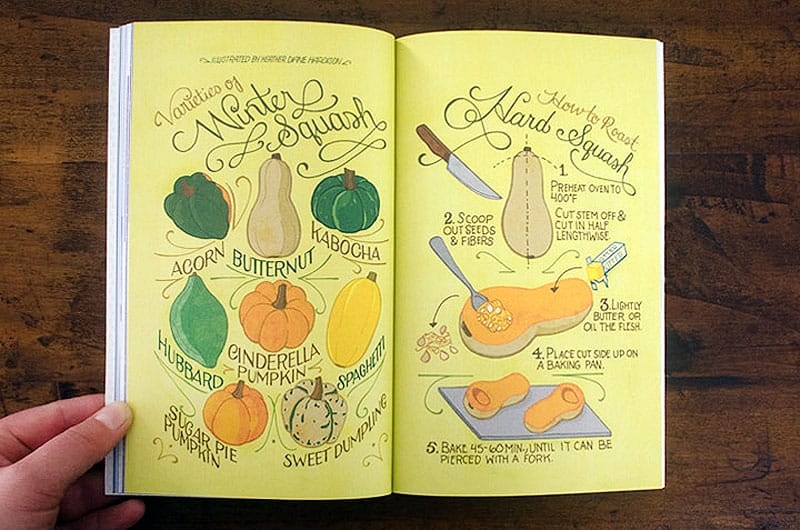 ILLUSTRATED BY HEATHER DIANE HARDISON
Varieties of
Winter
Squash
ACORN
BUTTERNUT
KABOCHA
HUBBARD
CINDERELLA
PUMPKIN
SPAGHETTI
SUGAR PIE
PUMPKIN
SWEET DUMPLING
How to Roast
Hard Squash
1.
PREHEAT OVEN TO
400°F
CUT STEM OFF &
CUT IN HALF
LENGTHWISE
2. SCOOP
OUT SEEDS
& FIBERS
3. LIGHTLY
BUTTER OR
OIL THE FLESH.
4. PLACE CUT SIDE UP ON
A BAKING PAN.
5. BAKE 45-60 MIN., UNTIL IT CAN BE
PIERCED WITH A FORK.